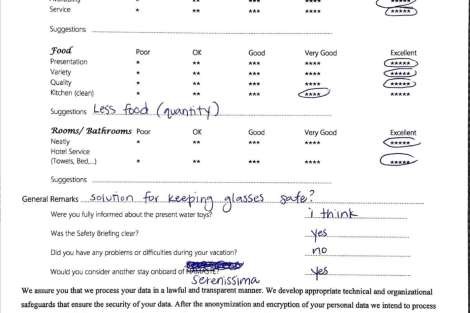 Service * ** *** **** *****
Suggestions
Food Poor OK Good Very Good Excellent
Presentation * ** *** **** *****
Variety * ** *** **** *****
Quality * ** *** **** *****
Kitchen (clean) * ** *** **** *****
Suggestions Less food (quantity)
Rooms/ Bathrooms Poor OK Good Very Good Excellent
Neatly * ** *** **** *****
Hotel Service
(Towels, Bed,...) * ** *** **** *****
Suggestions
General Remarks solution for keeping glasses safe?
Were you fully informed about the present water toys? i think
Was the Safety Briefing clear? yes
Did you have any problems or difficulties during your vacation? no
Would you consider another stay onboard of yes
serenissima
We assure you that we process your data in a lawful and transparent manner. We develop appropriate technical and organizational
safeguards that ensure the security of your data. After the anonymization and encryption of your personal data we intend to process